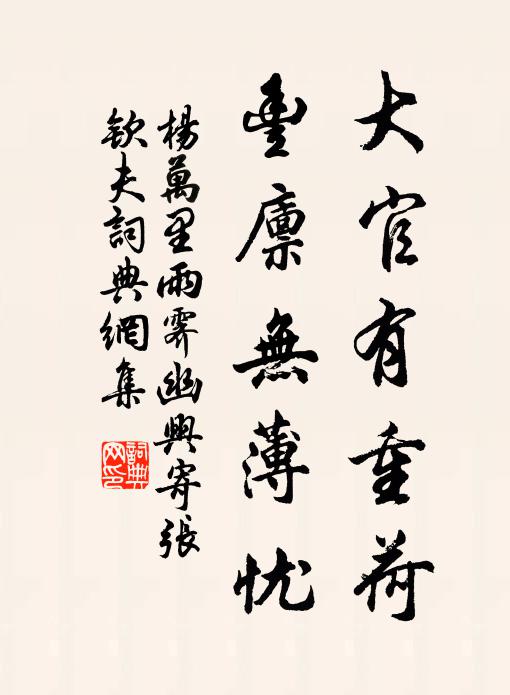 大官有重荷
豐廪無薄忧
楊萬里雨霽幽興寄張
欽夫詞典網集
詞典網印